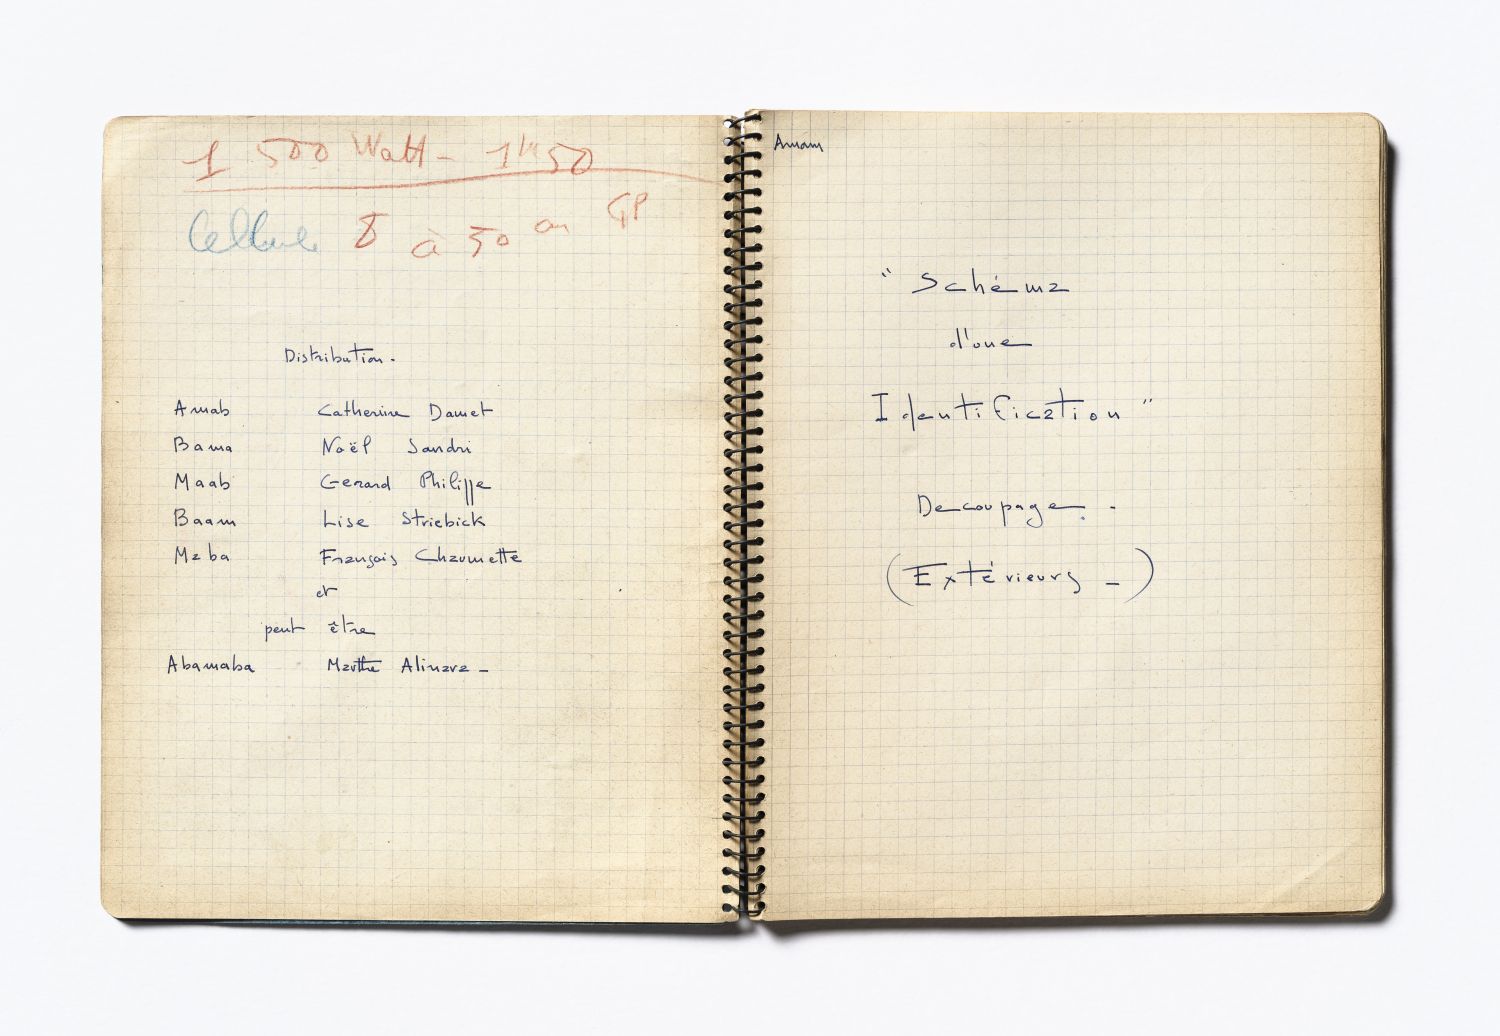 1 500 Watt - 1m50
Cellule 8 à 50 au GP
Distribution -
Amab Catherine Damet
Bama Noël Sandri
Maab Gerard Philippe
Baam Lise Striebick
Maba François Chaumette
et
peut être
Abamaba Marthe Alinara -
Amam
" Schéma
d'une
Identification "
Decoupage -
(Extérieurs -)